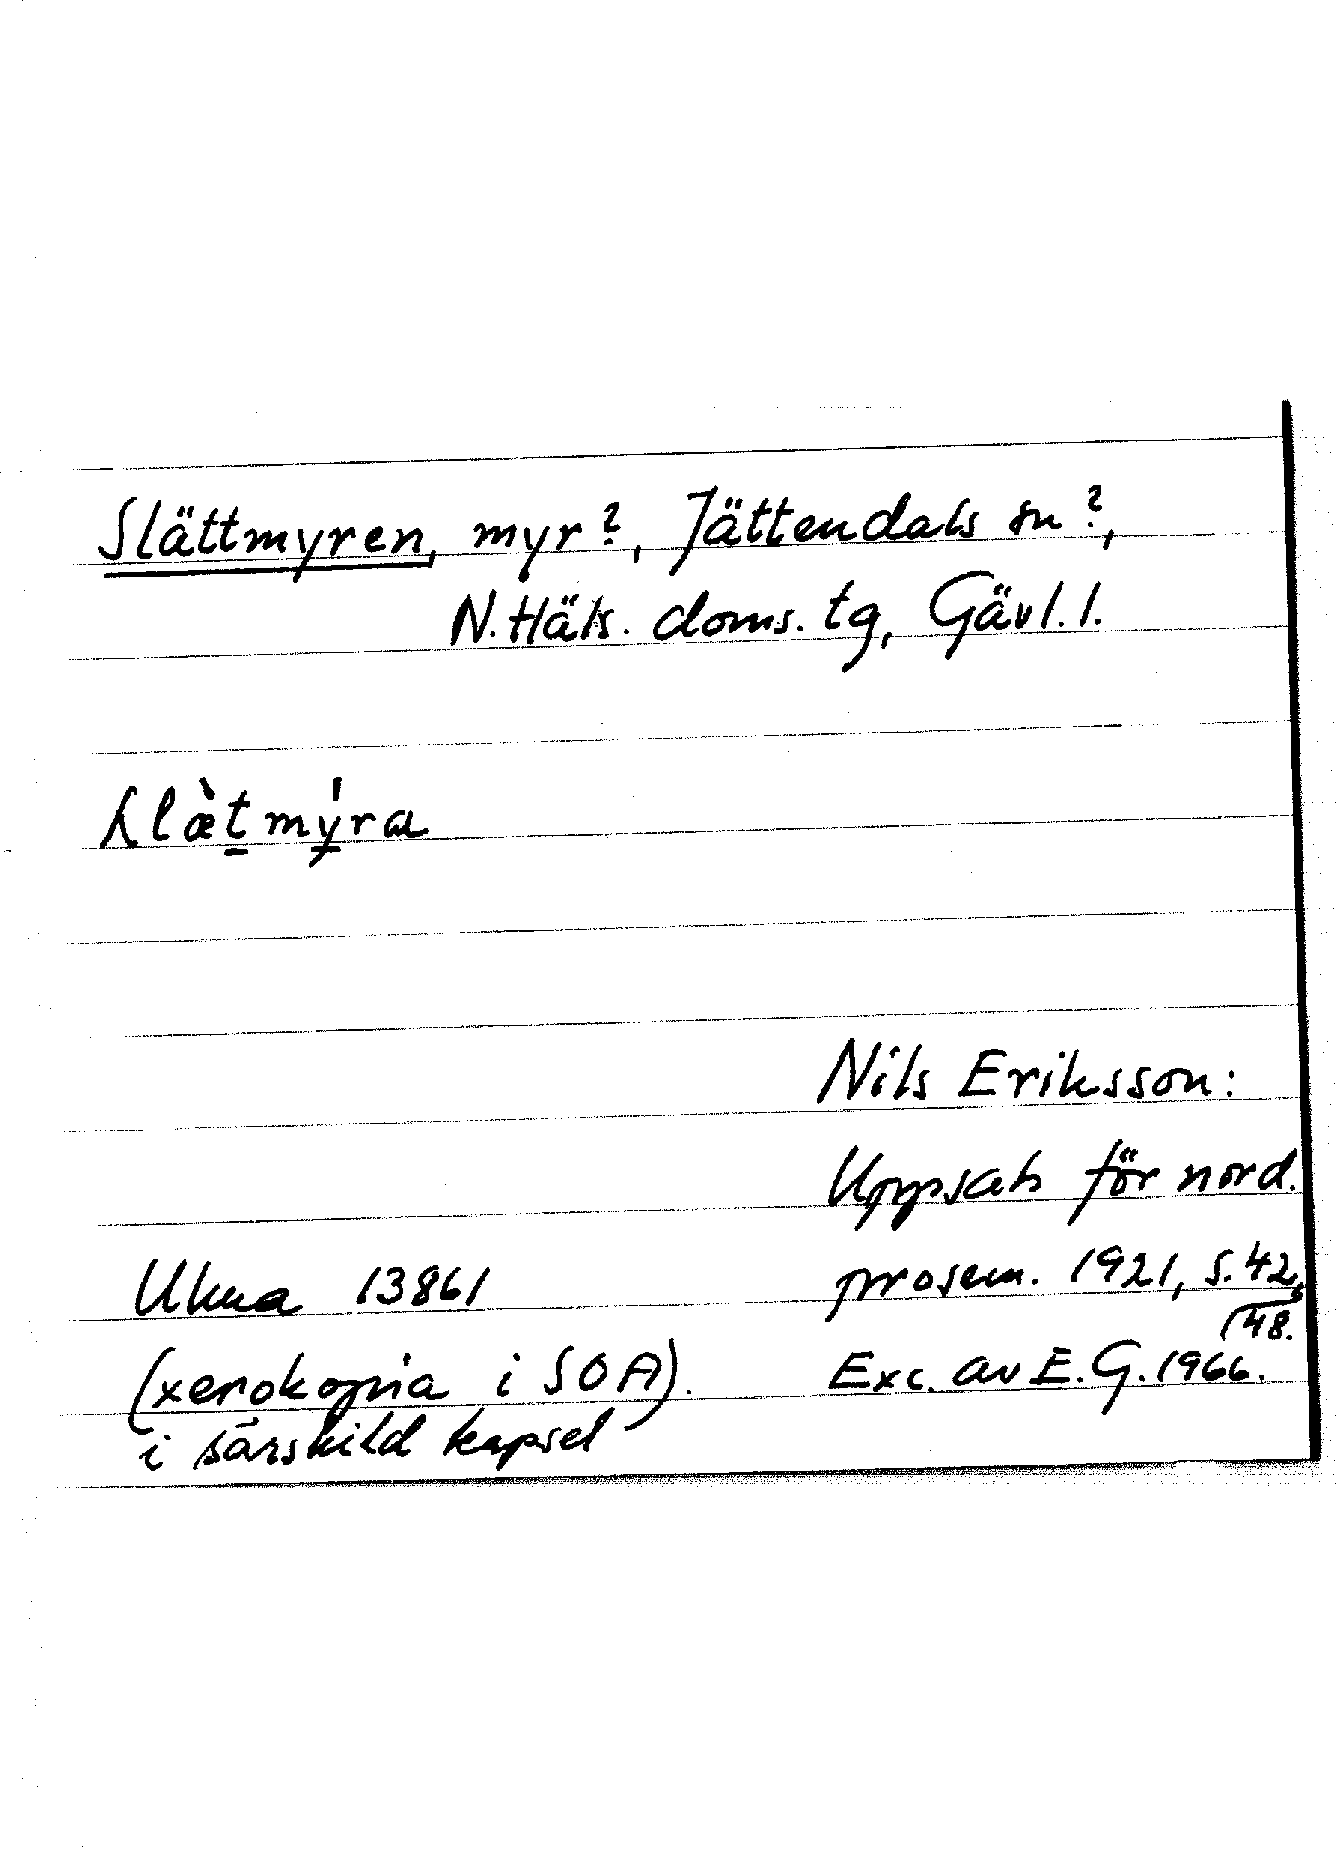 Slättmyren, myr?, Jättendals sn?,
N. Häls. doms. tg, Gävl. l.
ʃlæ̀t̠mý̠ra
Nils Eriksson:
Uppsats för nord.
prosem. 1921, s. 42,
48.
Ulma 13861
(xerokopia i SOA).
Exc. av E. G. 1966.
i särskild kapsel